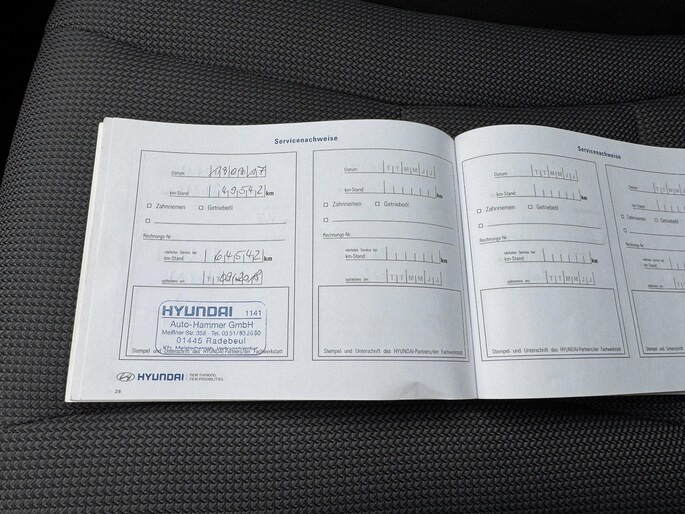 Servicenachweise
Datum
km-Stand 49542 km
Zahnriemen Getriebeöl
Rechnungs-Nr.
nächstes Service bei
km-Stand: 64542 km
spätestens am:
HYUNDAI 1141
Auto-Hammer GmbH
01445 Radebeul
Stempel und Unterschrift des HYUNDAI-Partners/der Fachwerkstatt
HYUNDAI NEW THINKING.
NEW POSSIBILITIES.
Datum T T M M J J
km-Stand km
Zahnriemen Getriebeöl
Rechnungs-Nr.
nächstes Service bei
km-Stand: km
spätestens am: T T M M J J
Stempel und Unterschrift des HYUNDAI-Partners/der Fachwerkstatt
Servicenachweise
Datum T T M M J J
km-Stand km
Zahnriemen Getriebeöl
Rechnungs-Nr.
nächstes Service bei
km-Stand: km
spätestens am: T T M M J J
Stempel und Unterschrift des HYUNDAI-Partners/der Fachwerkstatt
Datum
km-Stand
Zahnriemen
Rechnungs-Nr.
nächstes Service bei
km-Stand:
spätestens am: